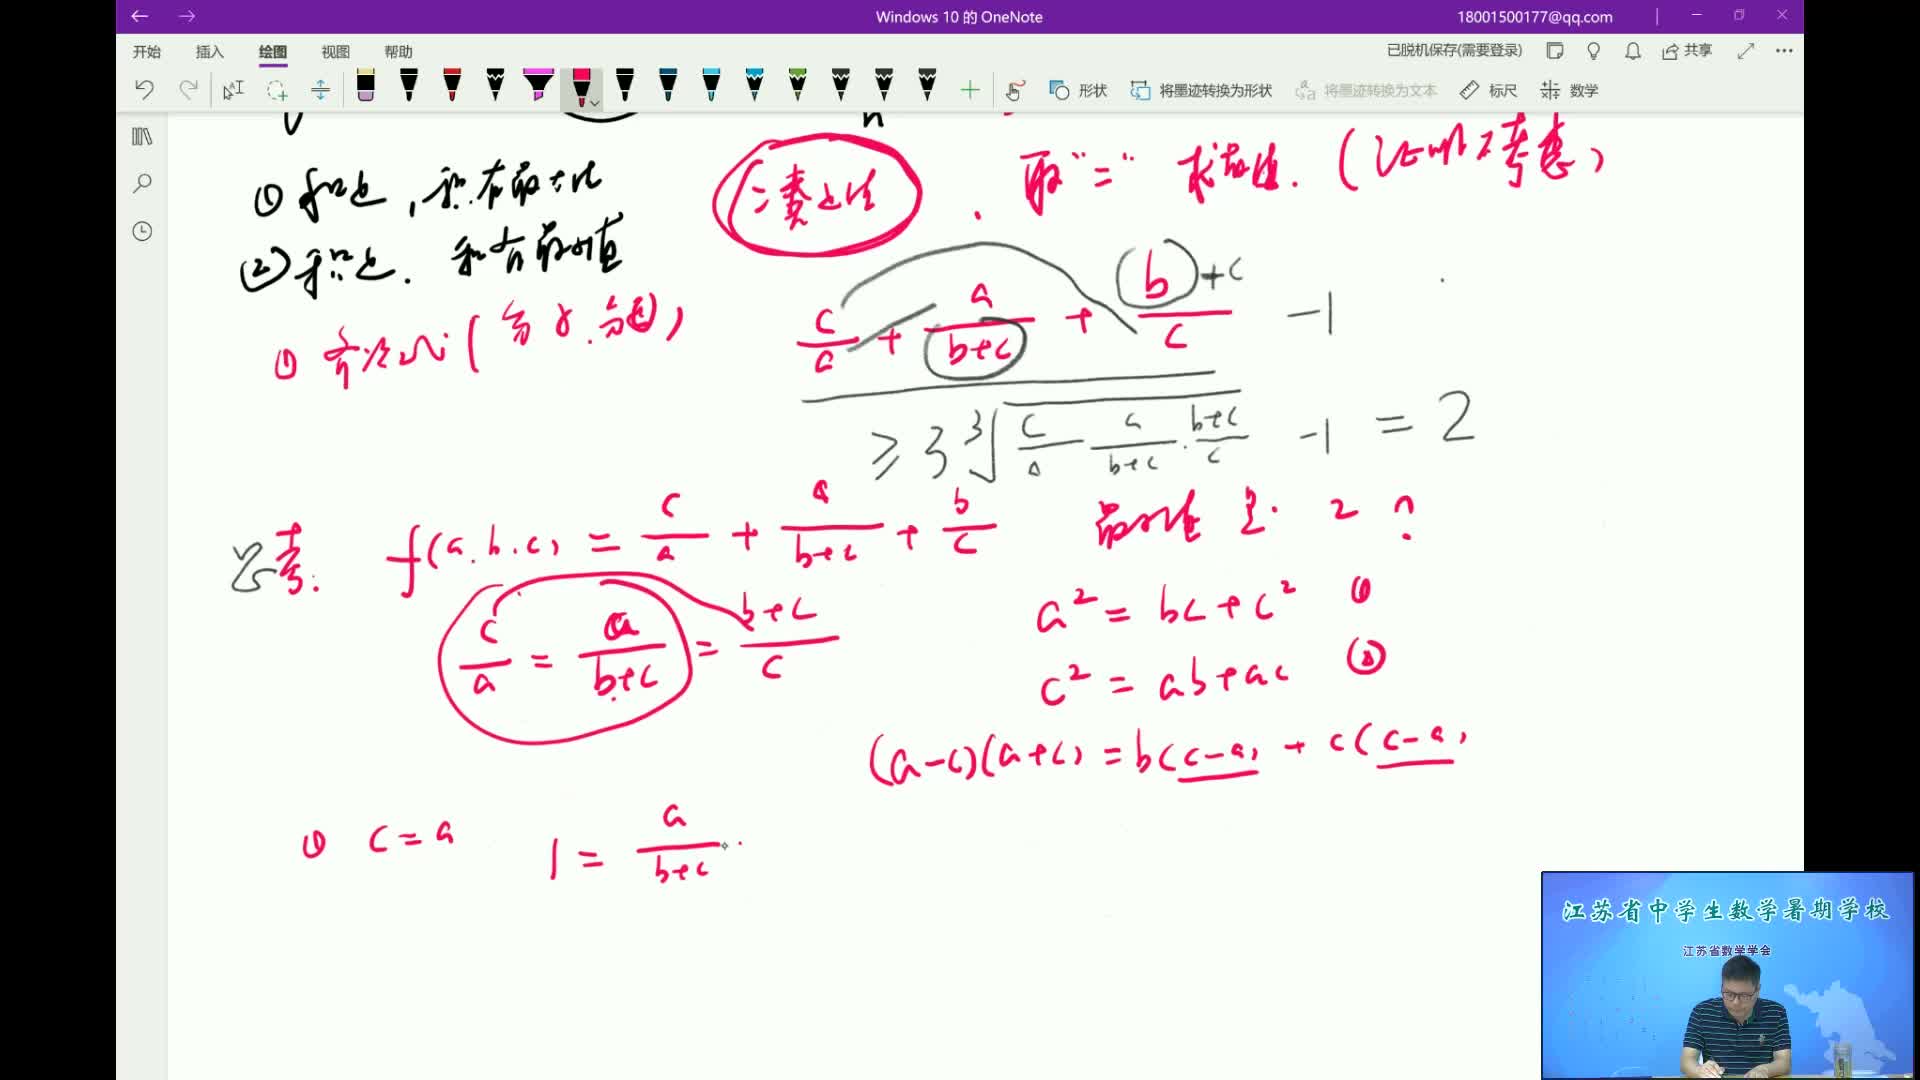 Windows 10 的 OneNote
18001500177@qq.com
开始 插入 绘图 视图 帮助
已脱机保存(需要登录) 共享
形状 将墨迹转换为形状 将墨迹转换为文本 标尺 数学
① 和定,积有最大值
② 积定. 和有最小值
凑定法
取"=" 求最值. (证明不考虑)
① 齐次式(分子.分母)
c/a + a/(b+c) + (b+c)/c -1
≥ 3 ∛(c/a · a/(b+c) · (b+c)/c) -1 = 2
思考. f(a.b.c) = c/a + a/(b+c) + b/c 最小值是. 2 ?
c/a = a/(b+c) = (b+c)/c
a² = bc+c² ①
c² = ab+ac ②
(a-c)(a+c) = b(c-a) + c(c-a)
① c=a 1 = a/(b+c)
江苏省中学生数学暑期学校
江苏省数学学会